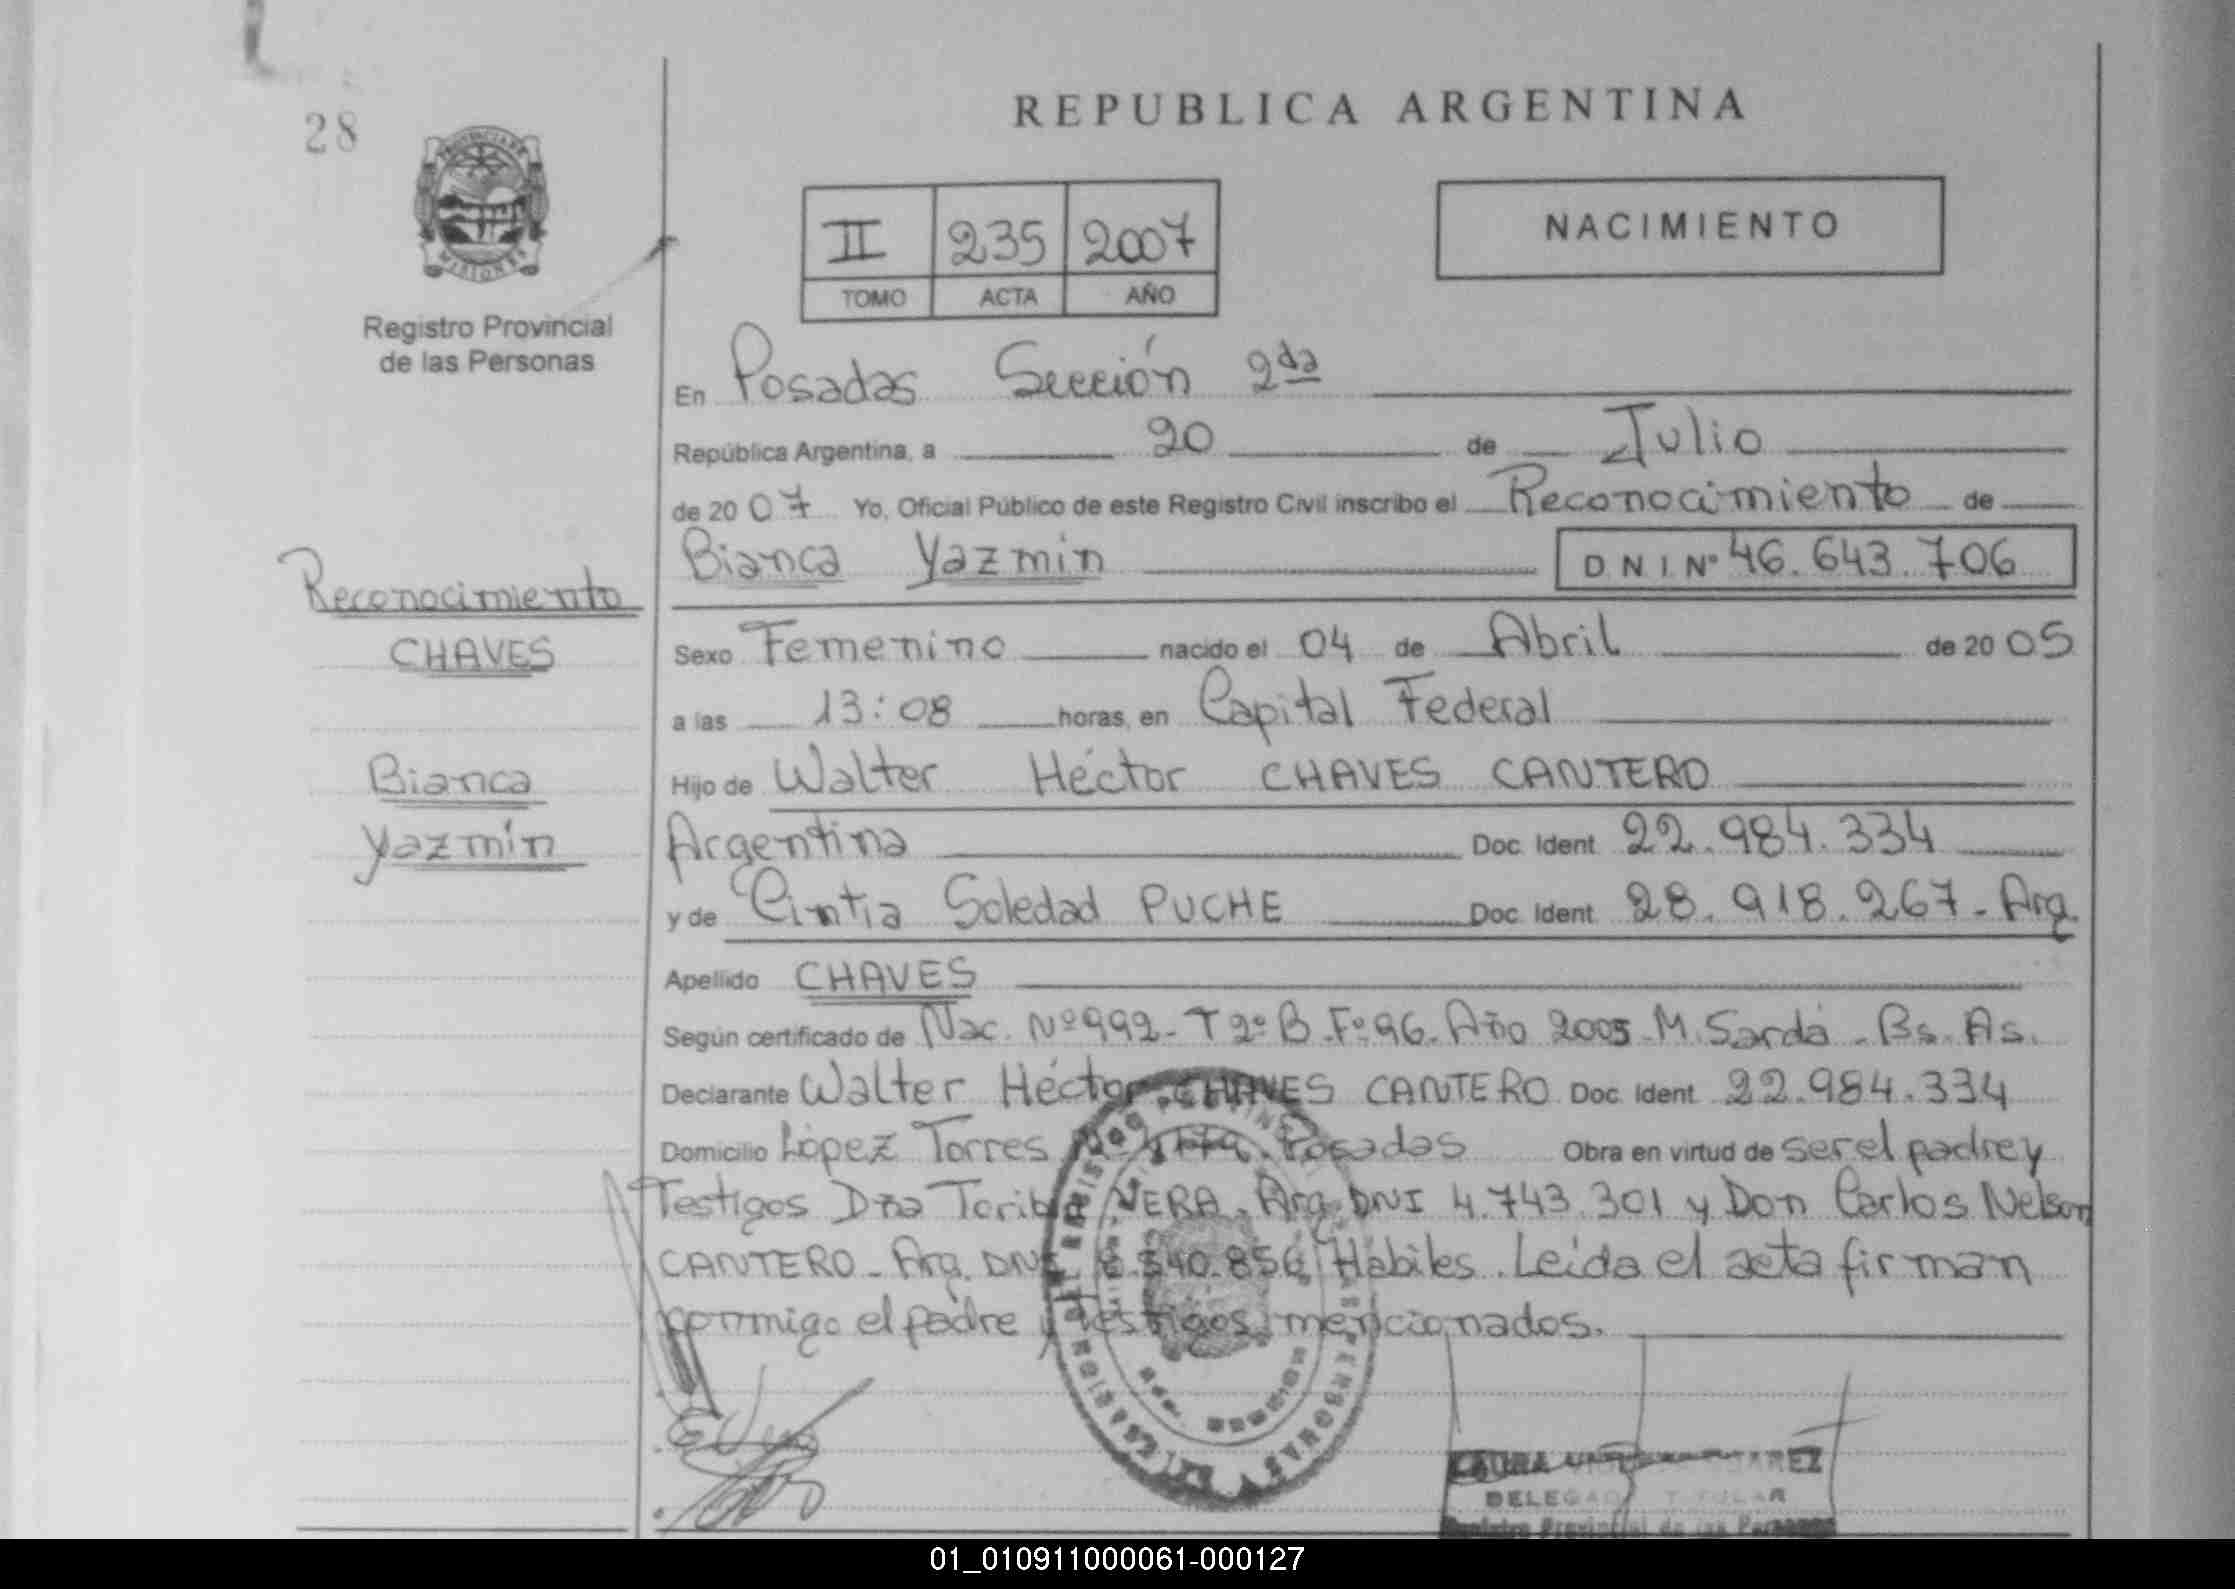 28
PROVINCIA DE
MISIONES
Registro Provincial
de las Personas
REPUBLICA ARGENTINA
II 235 2007
TOMO ACTA AÑO
NACIMIENTO
En Posadas Sección 2da
República Argentina, a 20 de Julio
de 2007 Yo, Oficial Público de este Registro Civil inscribo el Reconocimiento de
Bianca Yazmín DNI Nº 46.643.706
Reconocimiento
CHAVES
Bianca
Yazmín
Sexo Femenino nacido el 04 de Abril de 2005
a las 13:08 horas, en Capital Federal
Hijo de Walter Héctor CHAVES CANTERO
Argentina Doc. Ident. 22.984.334
y de Cintia Soledad PUCHE Doc. Ident. 28.918.267- Arg.
Apellido CHAVES
Según certificado de Nac. Nº 992- T 2º B. Fº 96. Año 2005 - M. Sardá - Bs. As.
Declarante Walter Héctor CHAVES CANTERO Doc. Ident. 22.984.334
Domicilio López Torres Posadas Obra en virtud de ser el padre y
Testigos Dña VERA. Arg. DNI 4.743.301 y Don Carlos Nelson
CANTERO - Arg. DNI Hábiles. Leída el acta firman
conmigo el padre y testigos mencionados.
DELEGADO TITULAR
Registro Provincial de las Personas
01_010911000061-000127